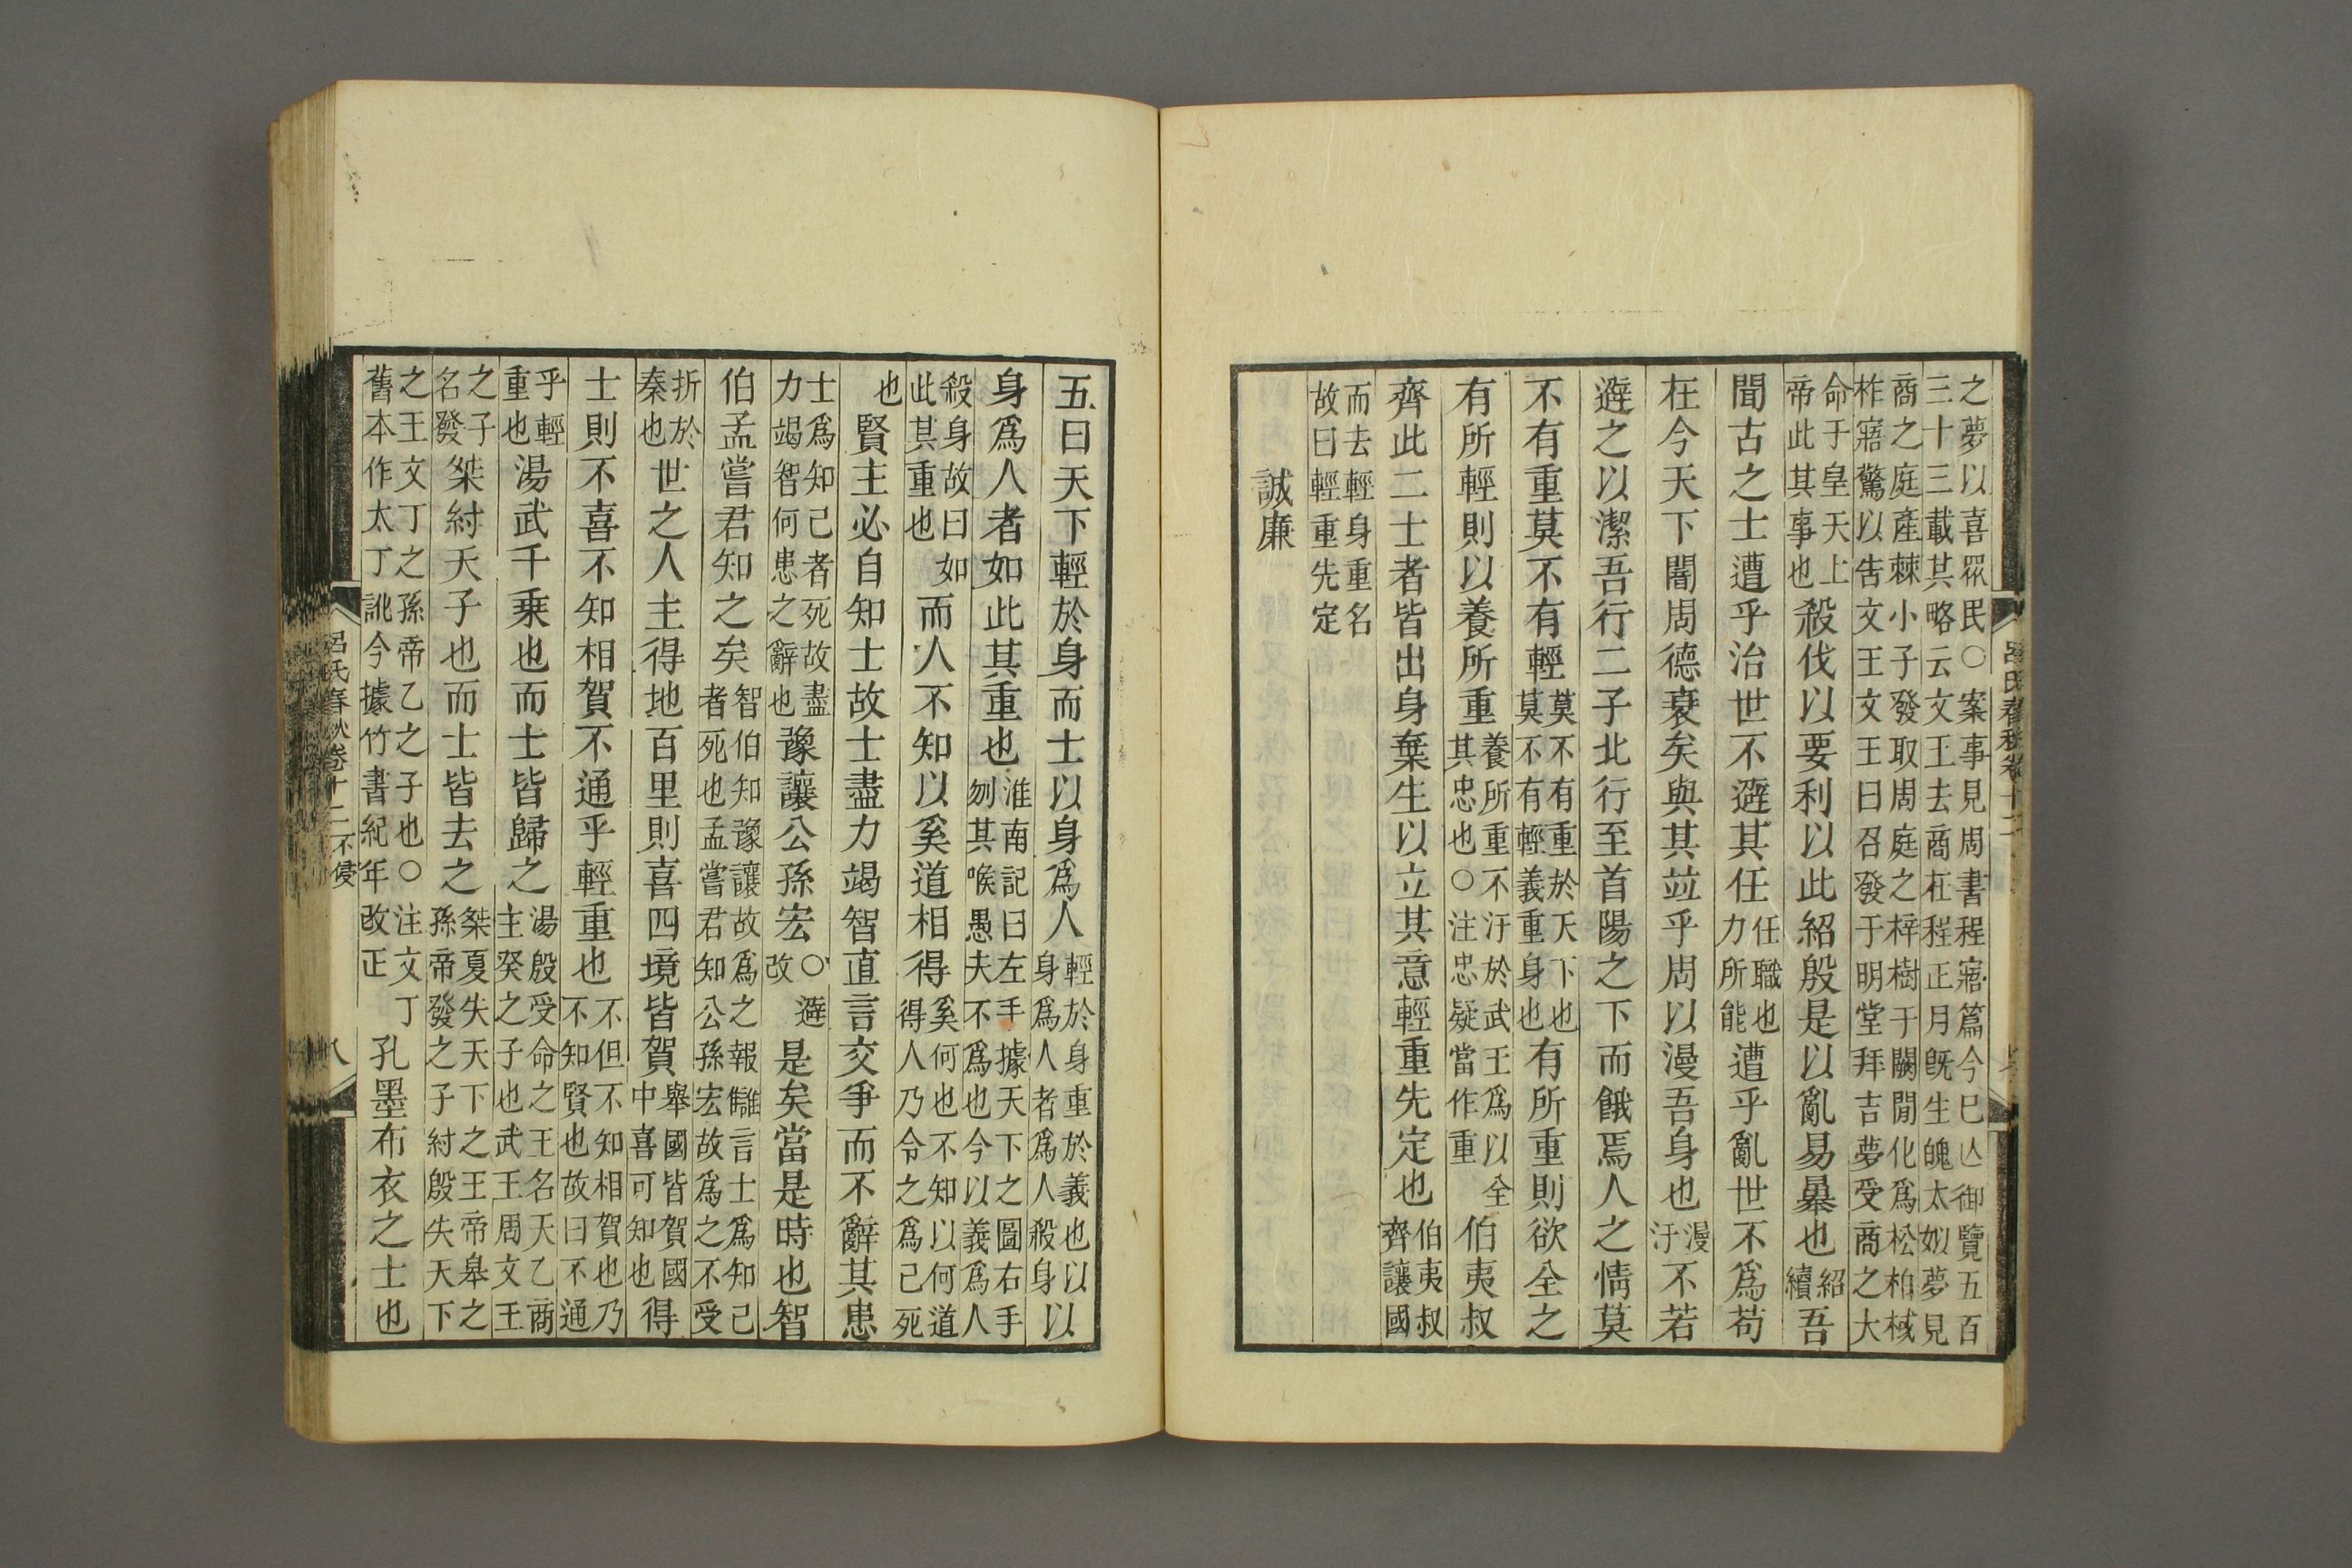 之夢以喜眾民○案事見周書程寤篇今已亾御覽五百三十三載其略云文王去商在程正月旣生魄太姒夢見
商之庭產棘小子發取周庭之梓樹于闕閒化爲松柏棫柞寤驚以告文王文王曰召發于明堂拜吉夢受商之大
命于皇天上帝此其事也殺伐以要利以此紹殷是以亂易暴也紹續吾
聞古之士遭乎治世不避其任任職也力所能遭乎亂世不爲苟
在今天下闇周德衰矣與其竝乎周以漫吾身也漫汙不若
避之以潔吾行二子北行至首陽之下而餓焉人之情莫
不有重莫不有輕莫不有重於天下也莫不有輕義重身也有所重則欲全之
有所輕則以養所重養所重不汙於武王爲以全其忠也○注忠疑當作重伯夷叔
齊此二士者皆出身棄生以立其意輕重先定也伯夷叔齊讓國
而去輕身重名故曰輕重先定
誠廉
呂氏春秋卷十二
五曰天下輕於身而士以身爲人輕於身重於義也以身爲人者爲人殺身以
身爲人者如此其重也淮南記曰左手據天下之圖右手刎其喉愚夫不爲也今以義爲人
殺身故曰如此其重也而人不知以奚道相得奚何也不知以何道得人乃令之爲己死
也賢主必自知士故士盡力竭智直言交爭而不辭其患
士爲知己者死故盡力竭智何患之辭也豫讓公孫宏○避改是矣當是時也智
伯孟嘗君知之矣智伯知豫讓故爲之報讎言士爲知己者死也孟嘗君知公孫宏故爲之不受
折於秦也世之人主得地百里則喜四境皆賀舉國皆賀國中喜可知也得
士則不喜不知相賀不通乎輕重也不但不知相賀也乃不知賢也故曰不通
乎輕重也湯武千乘也而士皆歸之湯殷受命之王名天乙商主癸之子也武王周文王
之子名發桀紂天子也而士皆去之桀夏失天下之王帝皋之孫帝發之子紂殷失天下
之王文丁之孫帝乙之子也○注文丁舊本作太丁訛今據竹書紀年改正孔墨布衣之士也
呂氏春秋卷十二 不侵
八